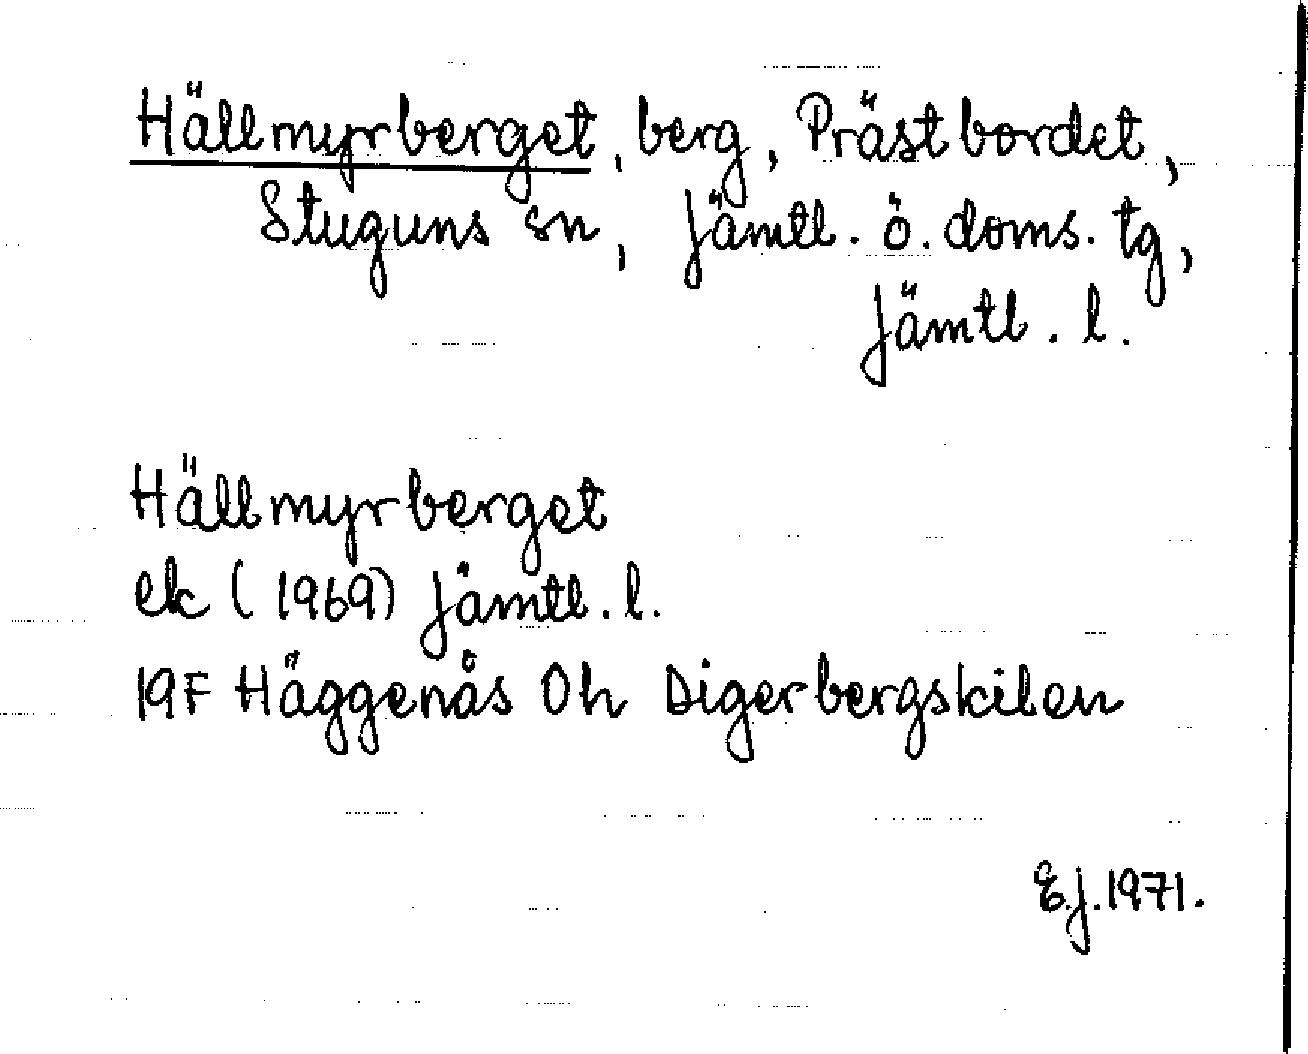 Hällmyrberget, berg, Prästbordet,
Stuguns sn, Jämtl. ö. doms. tg,
Jämtl. l.
Hällmyrberget
ek (1969) Jämtl. l.
19F Häggenås Oh Digerbergskilen
E.J. 1971.